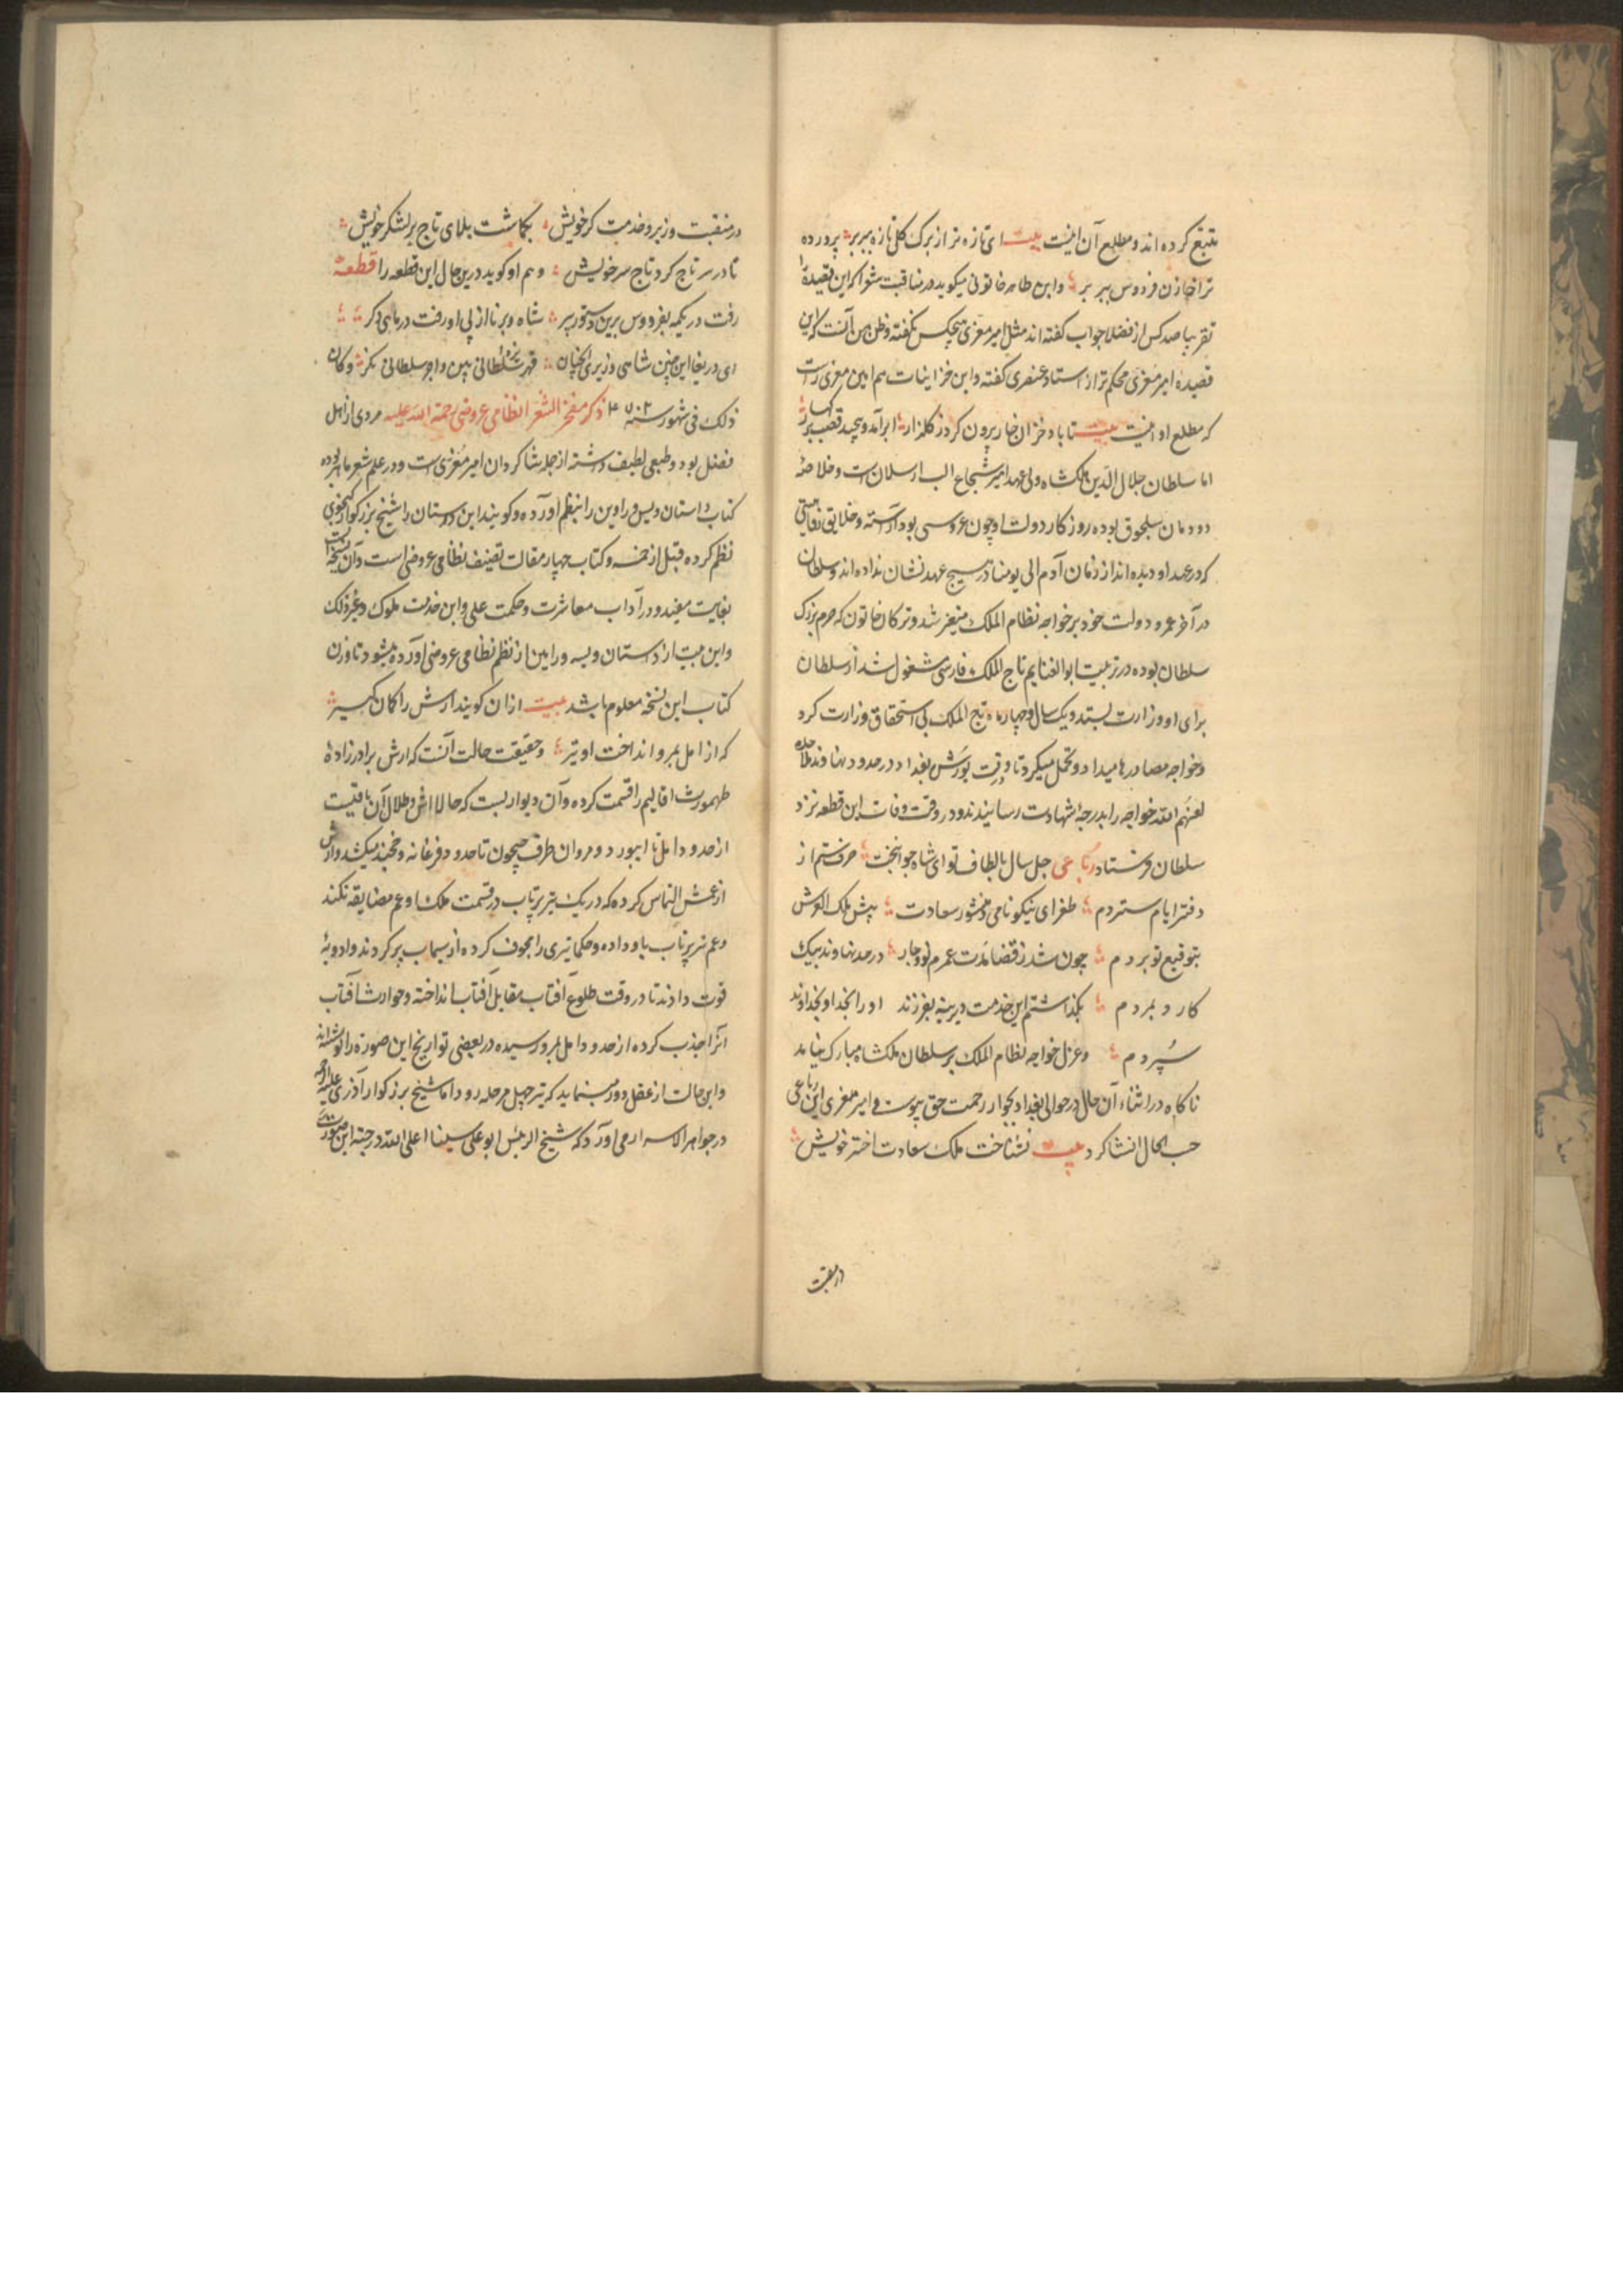 تتبع کرده اند و مطلع آن اینست بیت ای تازه تر از برک کل تازه ببر بر پرورده
ترا خازن فردوس ببر بر وابن طاهر خاتونی میکوید در مناقب شعرا که این قصیده را
تقریبا صد کس از فضلا جواب کفته اند مثل امیر معزی هیچکس نکفته و ظن من آنست که این
قصیده امیر معزی محکم تر از استاد عنصری کفته و این خزاینات هم امیر معزی راست
که مطلع او اینست بیت تا باد خزان خار برون کرد ز کلزار ابر آمد و پیچید قصب بر
اما سلطان جلال الدین ملکشاه ولی عهد امیر شجاع الب ارسلان است و خلاصه
دودمان سلجوق بوده روزکار دولت او چون عروسی بود آراسته و خلایق
که در عهد او دیده اند از زمان آدم الی یومنا در هیچ عهد نشان نداده اند و سلطان
در آخر عمر و دولت خود بر خواجه نظام الملک متغیر شد و ترکان خاتون که حرم بزرک
سلطان بوده در تربیت ابو الغنایم تاج الملک فارسی مشغول شد از سلطان
برای او وزارت بستد و یک سال و چهار ماه تاج الملک بی استحقاق وزارت کرد
و خواجه مصادرها میداد و تحمل میکرد تا وقت یورش بغداد در حدود نهاوند ملاحده
لعنهم الله خواجه را بدرجه شهادت رسانیدند و در وقت وفات این قطعه نزد
سلطان فرستاد رباعی چل سال بالطاف تو ای شاه جوانبخت حرف ستم از
دفتر ایام ستردم طغرای نیکونامی و منشور سعادت پیش ملک العرش
بتوقیع تو بردم چون شد ز قضا مدت عمرم نود و چار در حد نهاوند بیک
کارد بمردم بکذاشتم این خدمت دیرینه بفرزند او را بخدا و بخداوند
سپردم و عزل خواجه نظام الملک بر سلطان ملکشاه مبارک نیامد
ناکاه در اثناء آن حال در حوالی بغداد بجوار رحمت حق پیوست و امیر معزی این رباعی
حسب الحال انشا کرد بیت نشناخت ملک سعادت اختر خویش
در منقبت
در منقبت وزیر و خدمت کر خویش بکماشت بلای تاج بر لشکر خویش
تا در سر تاج کرد تاج سر خویش و هم او کوید درین حال این قطعه را قطعه
رفت در یکمه بفردوس برین دستور پیر شاه برنا از پی او رفت در ماهی دکر
ای دریغا این چنین شاهی وزیری آنچنان قهر یزدانی ببین و عجز سلطانی نکر و کان
ذلک فی شهور سنه ذکر مفخر الشعرا نظامی عروضی رحمة الله علیه مردی از اهل
فضل بود و طبعی لطیف داشته از جمله شاکردان امیر معزی است و در علم شعر ماهر بوده
کتاب داستان ویس و رامین را بنظم آورده و کویند این داستان را شیخ بزرکوار کنجوی
نظم کرده قبل از خمسه و کتاب چهار مقالت تصنیف نظامی عروضی است و آن نسخه ایست
بغایت مفید و در آداب معاشرت و حکمت عملی و این خدمت ملوک و غیر ذلک
و این بیت از داستان ویسه و رامین از نظم نظامی عروضی آورده میشود تا وزن
کتاب این نسخه معلوم باشد بیت ازان کویند آرش را کمان کیر
که از امل بمرو انداخت او تیر و حقیقت حالت آنست که ارش برادر زاده
طهمورث اقالیم را قسمت کرده و آن دیواریست که حالا اش و طلال آن باقیست
از حدود امل تا ابیورد و مروان طرف جیحون تا حدود فرغانه و خجند میکشد و ارش
از عمش التماس کرده که در یک تیر پرتاب در قسمت ملک او عم مضایقه نکند
و عم تیر پرتاب باو داده و حکما تیری را مجوف کرده از سیماب پر کردند و ادویه
قوت دادند تا در وقت طلوع آفتاب مقابل آفتاب انداخته و حوادث آفتاب
آنرا جذب کرده از حدود امل بمرو رسیده در بعضی تواریخ این صورة را نوشته اند
و این حالت از عقل دور مینماید که تیر چهل مرحله رود اما شیخ بزرکوار آذری علیه الرحمه
در جواهر الاسرار می آورد که شیخ الرئیس ابو علی سینا اعلی الله درجته این صورت